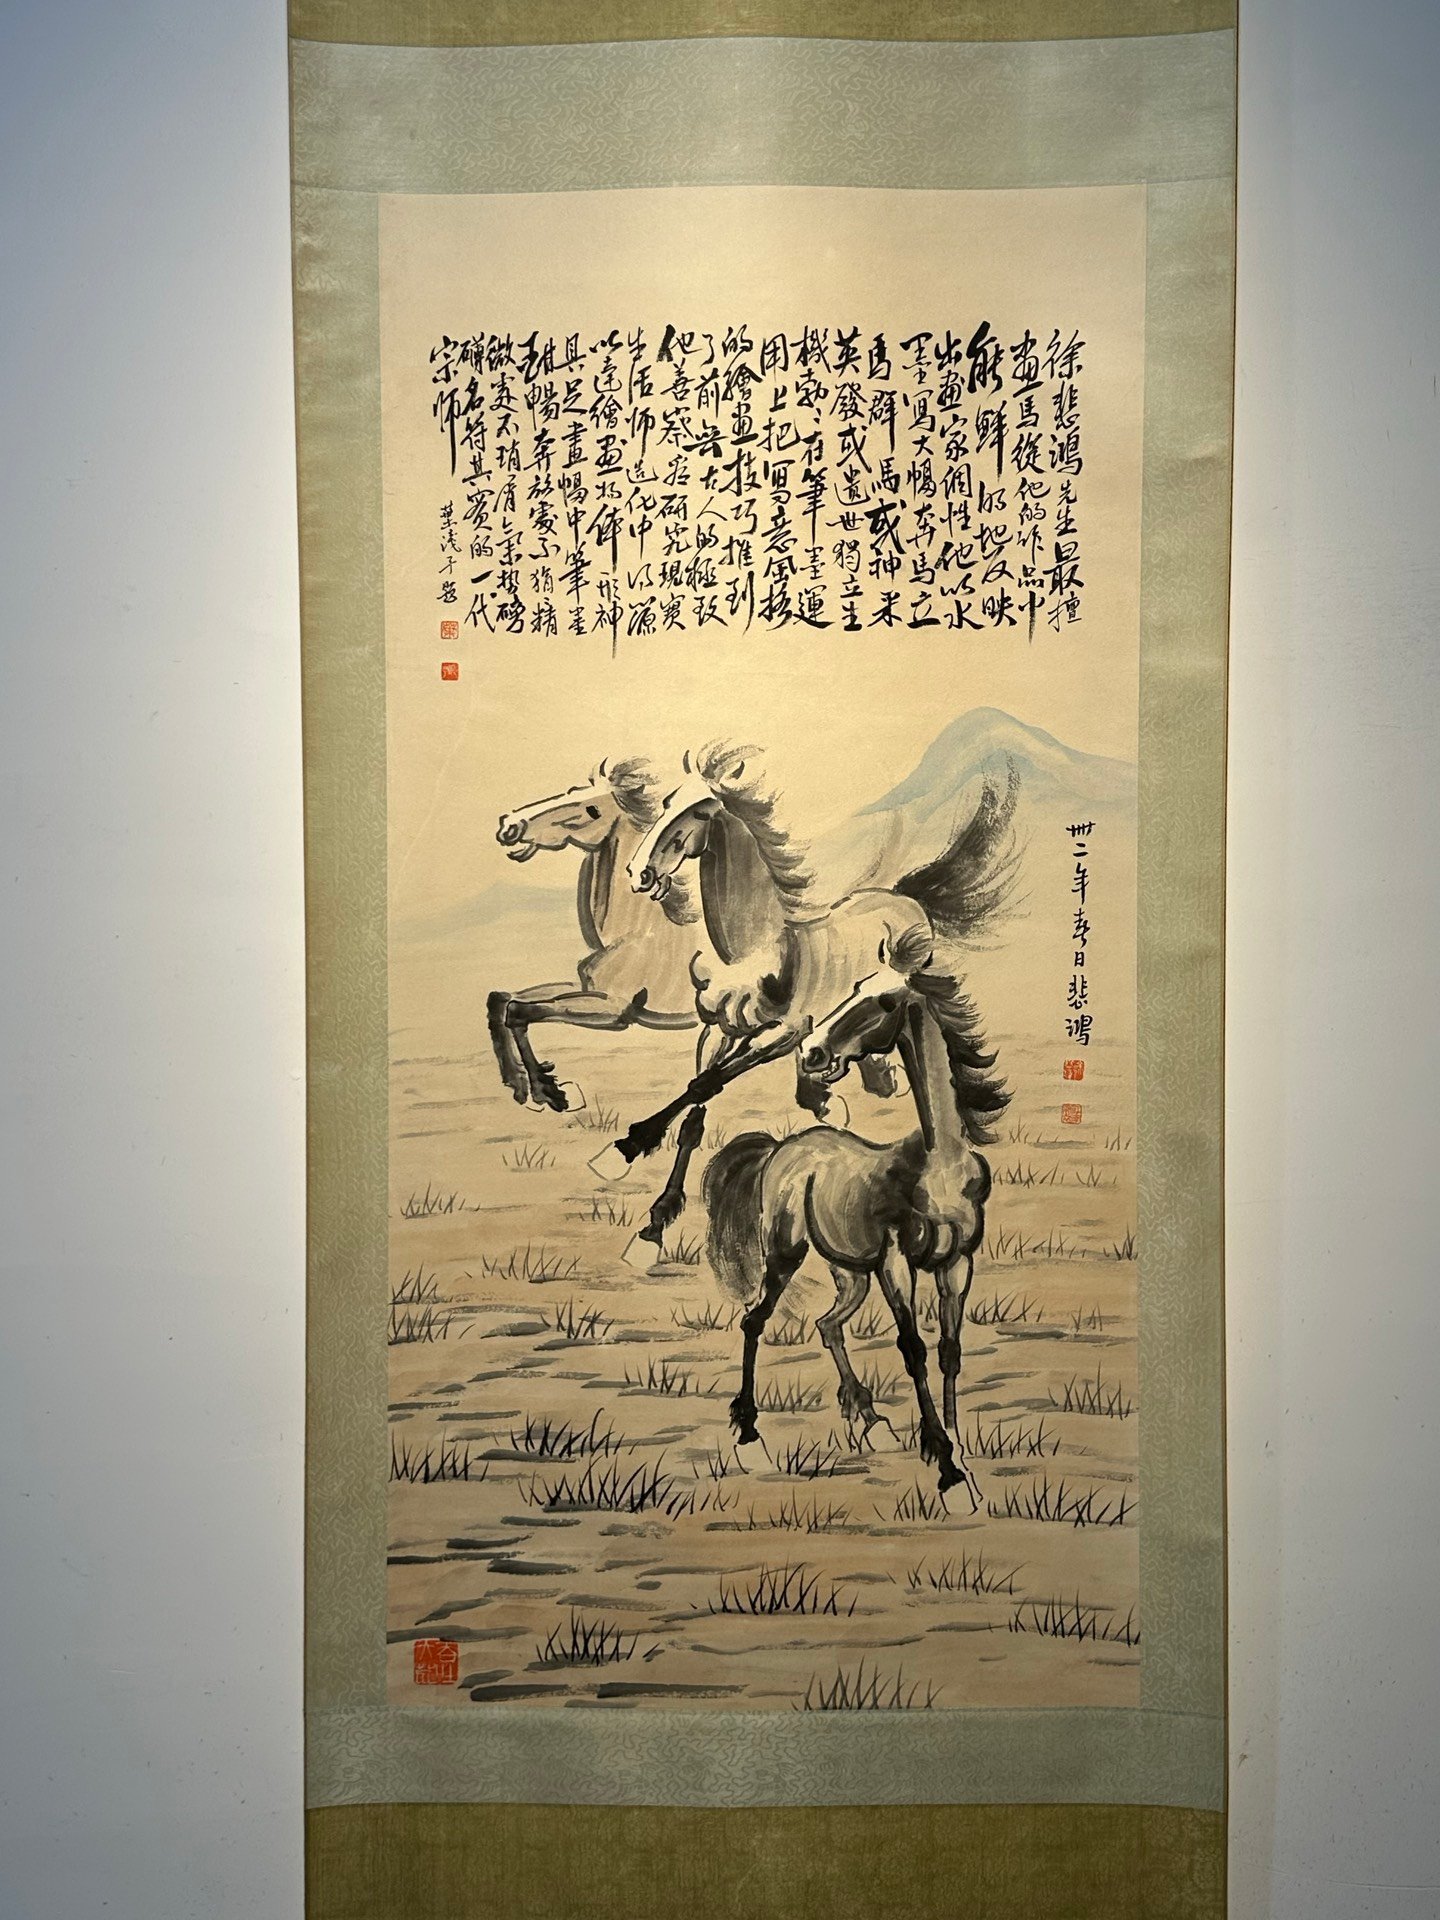 徐悲鴻先生最擅
画馬從他的作品中
能鮮明地反映
出画家個性他以水
墨寫大幅奔馬立
馬群馬或神采
英發或遺世獨立生
機勃〻在筆墨運
用上把寫意風格
的繪画技巧推到
了前無古人的極致
他善察名研究現實
生活师造化中得源
以達繪画物体形神
具足畫幅中筆墨
酣暢奔放處不狷精
微處不琑屑气势磅
礴名符其實的一代
宗师
葉浅予題
卅二年春日悲鴻